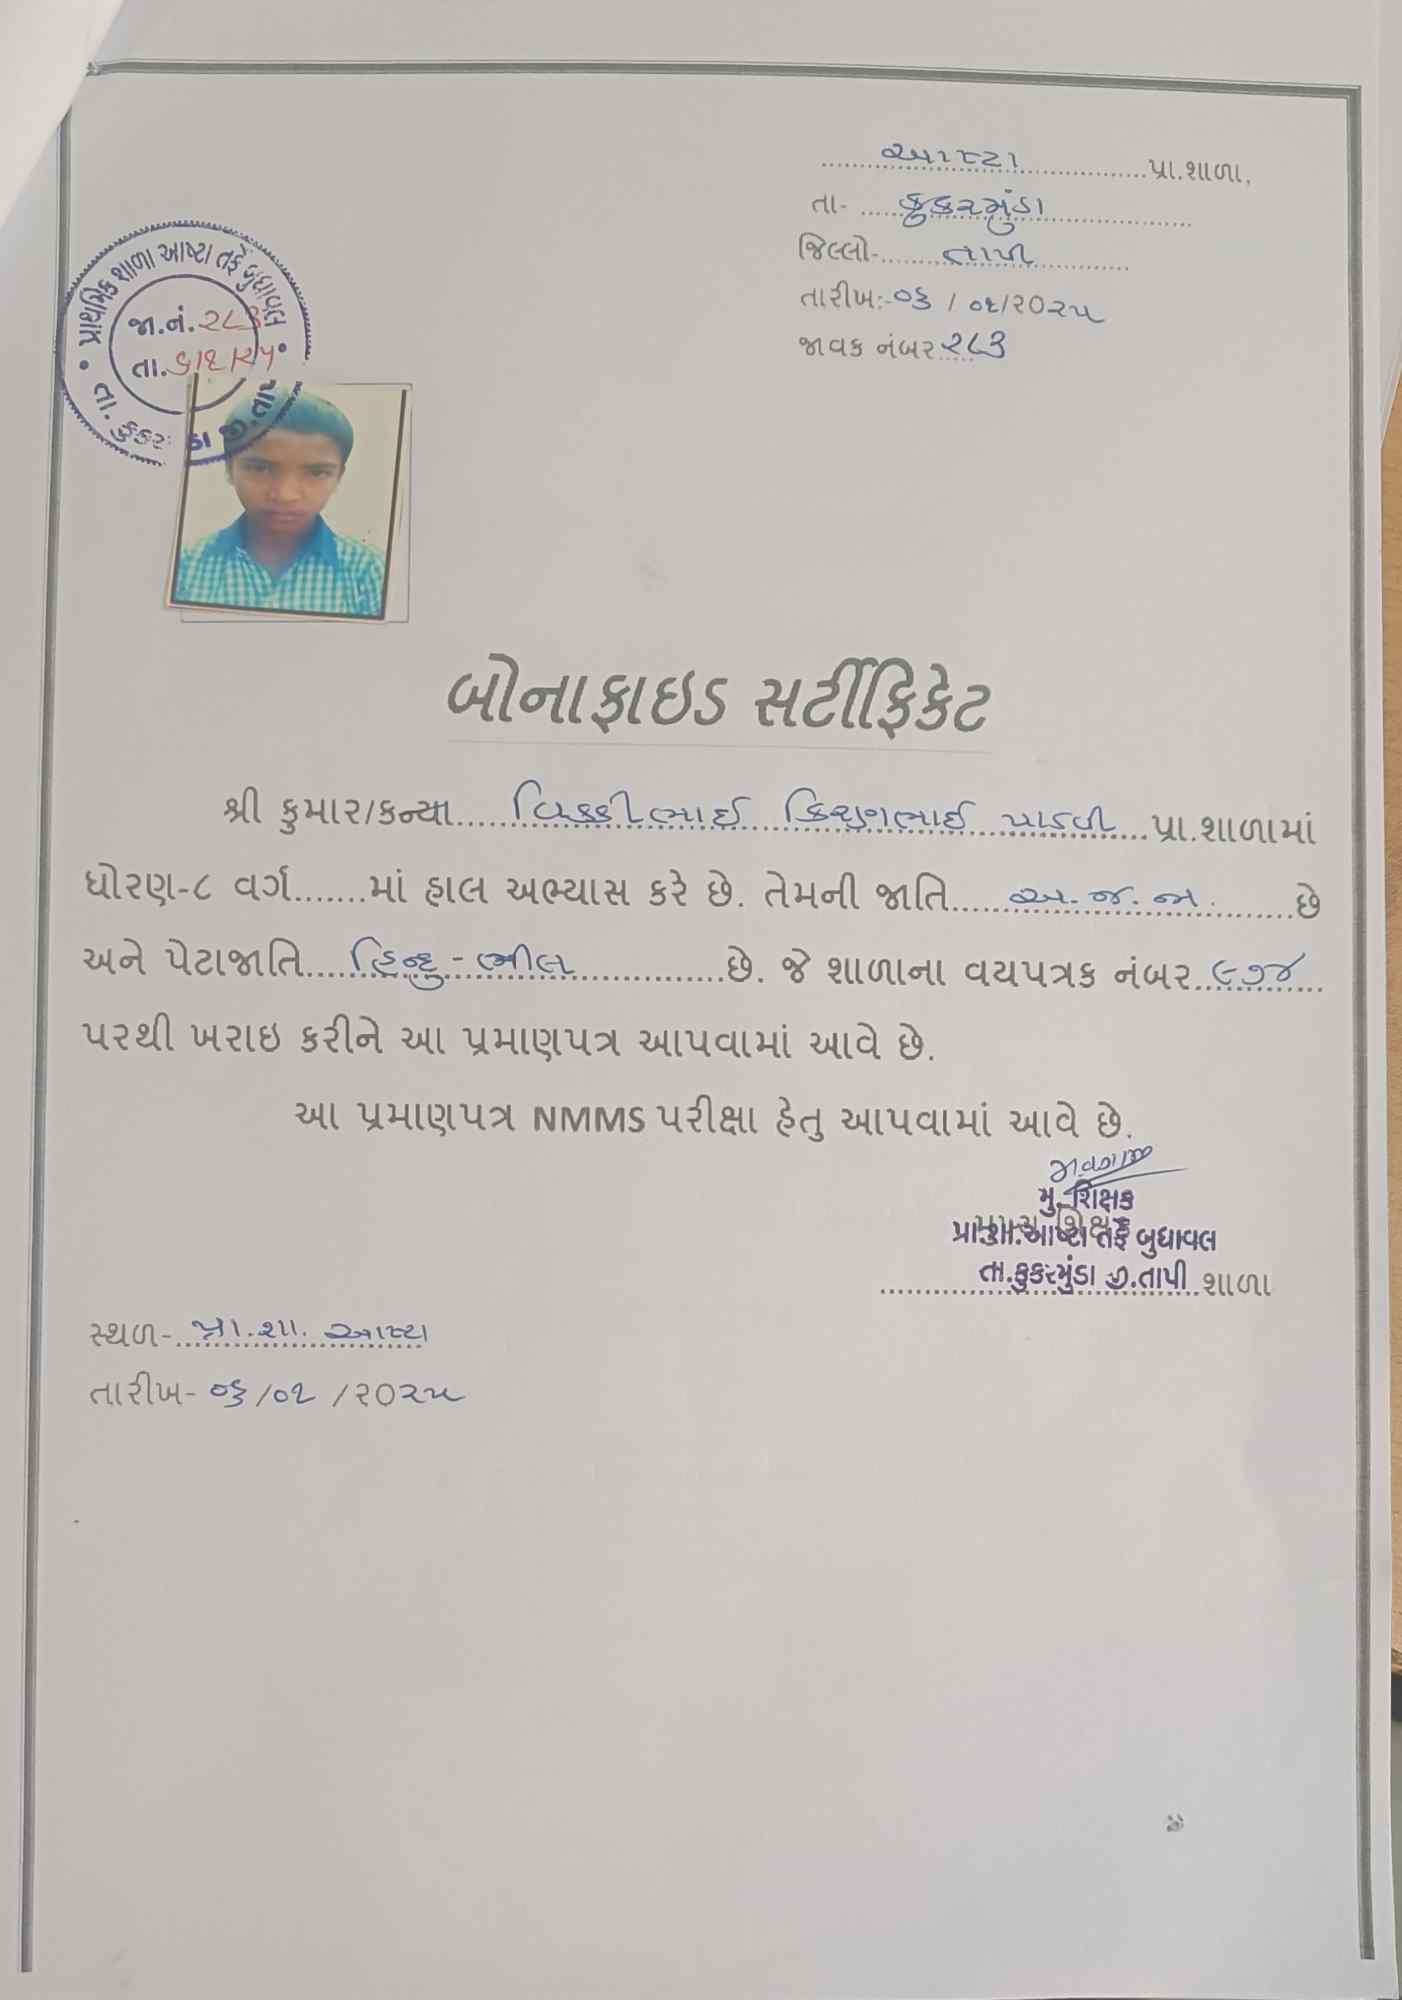 આષ્ટા પ્રા.શાળા,
તા- કુકરમુંડા
જિલ્લો- તાપી
તારીખ:- ૦૬ / ૦૧/૨૦૨૫
જાવક નંબર ૨૮૩
પ્રાથમિક શાળા આષ્ટા તર્ફે બુધાવલ
જા.નં. ૨૮૩
તા. ૬/૧/૨૫
તા. કુકર ડા જી.તાપી
બોનાફાઇડ સર્ટીફિકેટ
શ્રી કુમાર/કન્યા વિક્કીભાઈ કિશુનભાઈ પાડવી પ્રા.શાળામાં
ધોરણ-૮ વર્ગ.......માં હાલ અભ્યાસ કરે છે. તેમની જાતિ અ.જ.જા. છે
અને પેટાજાતિ હિન્દુ - ભીલ છે. જે શાળાના વયપત્રક નંબર ૯૭૪
પરથી ખરાઇ કરીને આ પ્રમાણપત્ર આપવામાં આવે છે.
આ પ્રમાણપત્ર NMMS પરીક્ષા હેતુ આપવામાં આવે છે.
મુ. શિક્ષક
પ્રા.શા. આષ્ટા તર્ફે બુધાવલ
તા.કુકરમુંડા જી.તાપી શાળા
સ્થળ- પ્રા.શા. આષ્ટા
તારીખ- ૦૬/૦૧ /૨૦૨૫